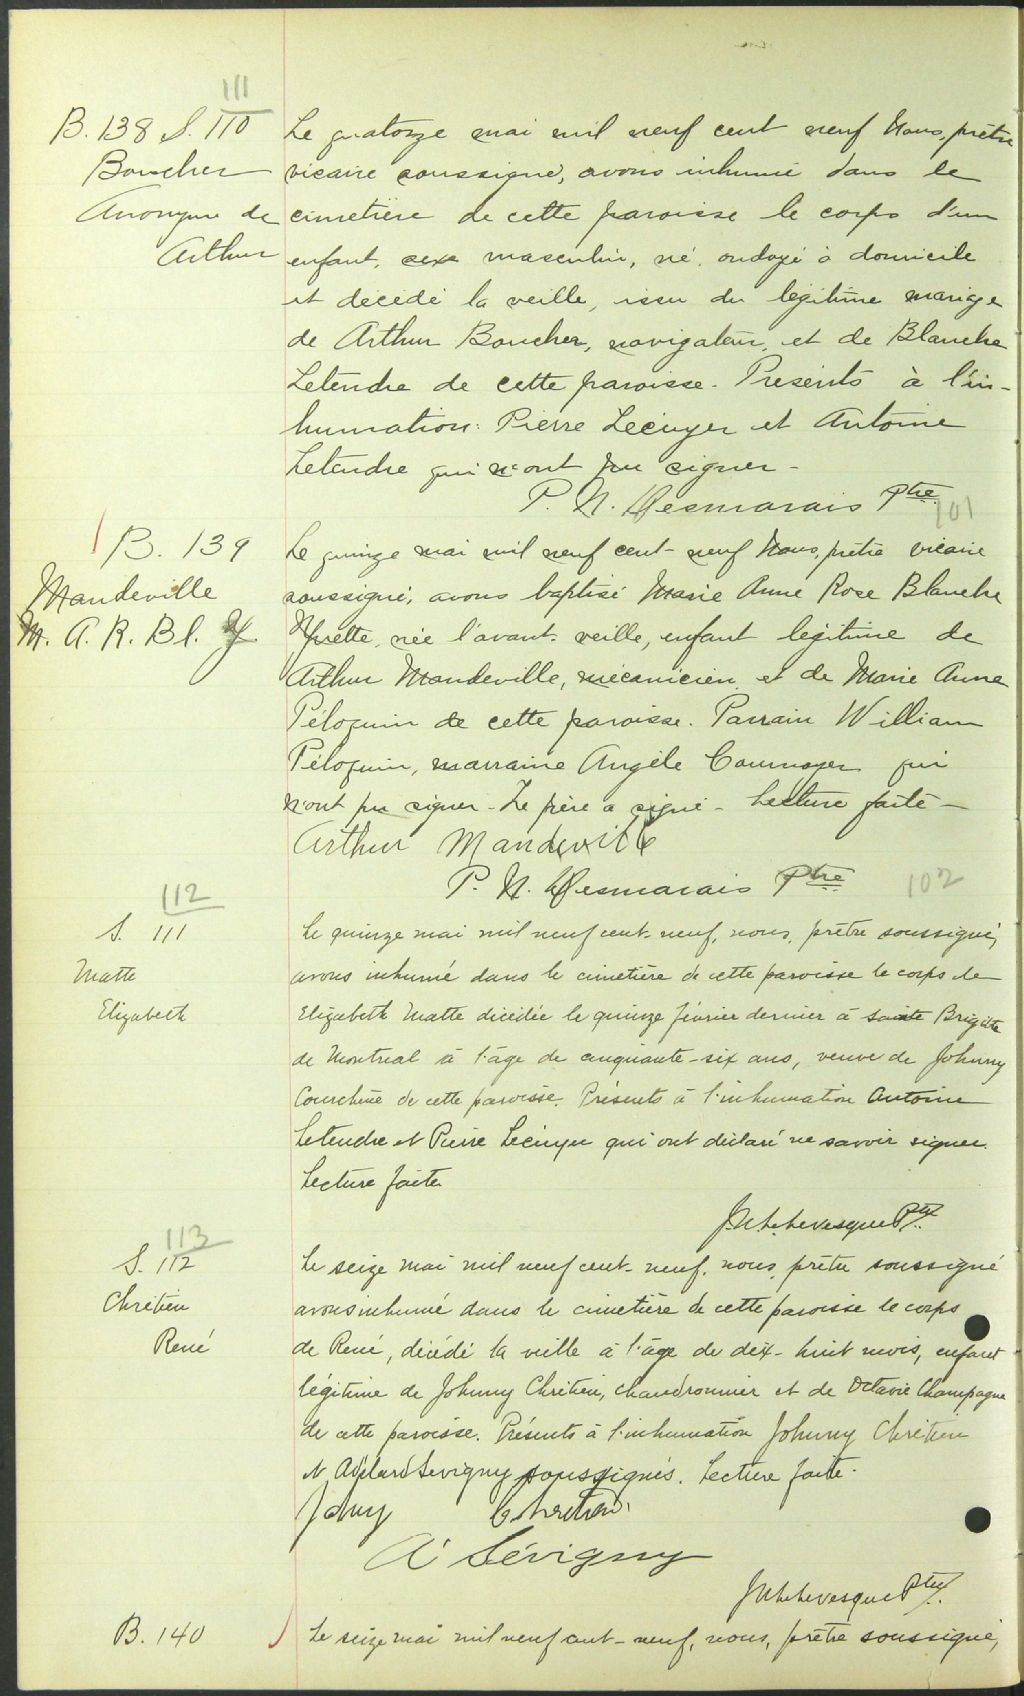 111
B. 138 S. 110
Boucher
Anonyme de
Arthur
Le quatorze mai mil neuf cent neuf Nous, prêtre
vicaire soussigné, avons inhumé dans le
cimetière de cette paroisse le corps d'un
enfant, sexe masculin, né, ondoyé à domicile
et décédé la veille, issu du légitime mariage
de Arthur Boucher, navigateur, et de Blanche
Letendre de cette paroisse. Présents à l'in-
humation: Pierre Lécuyer et Antoine
Letendre qui n'ont pu signer -
P. N. Desmarais Ptre
101
B. 139
Mandeville
M. A. R. Bl. Y
Le quinze mai mil neuf cent-neuf Nous, prêtre vicaire
soussigné, avons baptisé Marie Anne Rose Blanche
Yvette, née l'avant-veille, enfant légitime de
Arthur Mandeville, mécanicien et de Marie Anne
Péloquin de cette paroisse. Parrain William
Péloquin, marraine Angèle Cournoyer qui
n'ont pu signer - Le père a signé - Lecture faite -
Arthur Mandeville
P. N. Desmarais Ptre
102
112
S. 111
Matte
Elizabeth
Le quinze mai mil neuf cent-neuf, nous, prêtre soussigné,
avons inhumé dans le cimetière de cette paroisse le corps de
Elizabeth Matte décédée le quinze février dernier à Sainte Brigitte
de Montreal à l'âge de cinquante-six ans, veuve de Johnny
Courchêne de cette paroisse. Présents à l'inhumation Antoine
Letendre et Pierre Lécuyer qui ont déclaré ne savoir signer.
Lecture faite
Levesque Ptre
113
S. 112
Chrétien
René
Le seize mai mil neuf cent-neuf, nous, prêtre soussigné
avons inhumé dans le cimetière de cette paroisse le corps
de René, décédé la veille à l'âge de dix-huit mois, enfant
légitime de Johnny Chrétien, chaudronnier et de Octavie Champagne
de cette paroisse. Présents à l'inhumation Johnny Chrétien
et Adélard Sevigny soussignés. Lecture faite.
Johny Chretien
A Sévigny
Levesque Ptre
B. 140
Le seize mai mil neuf cent-neuf, nous, prêtre soussigné,